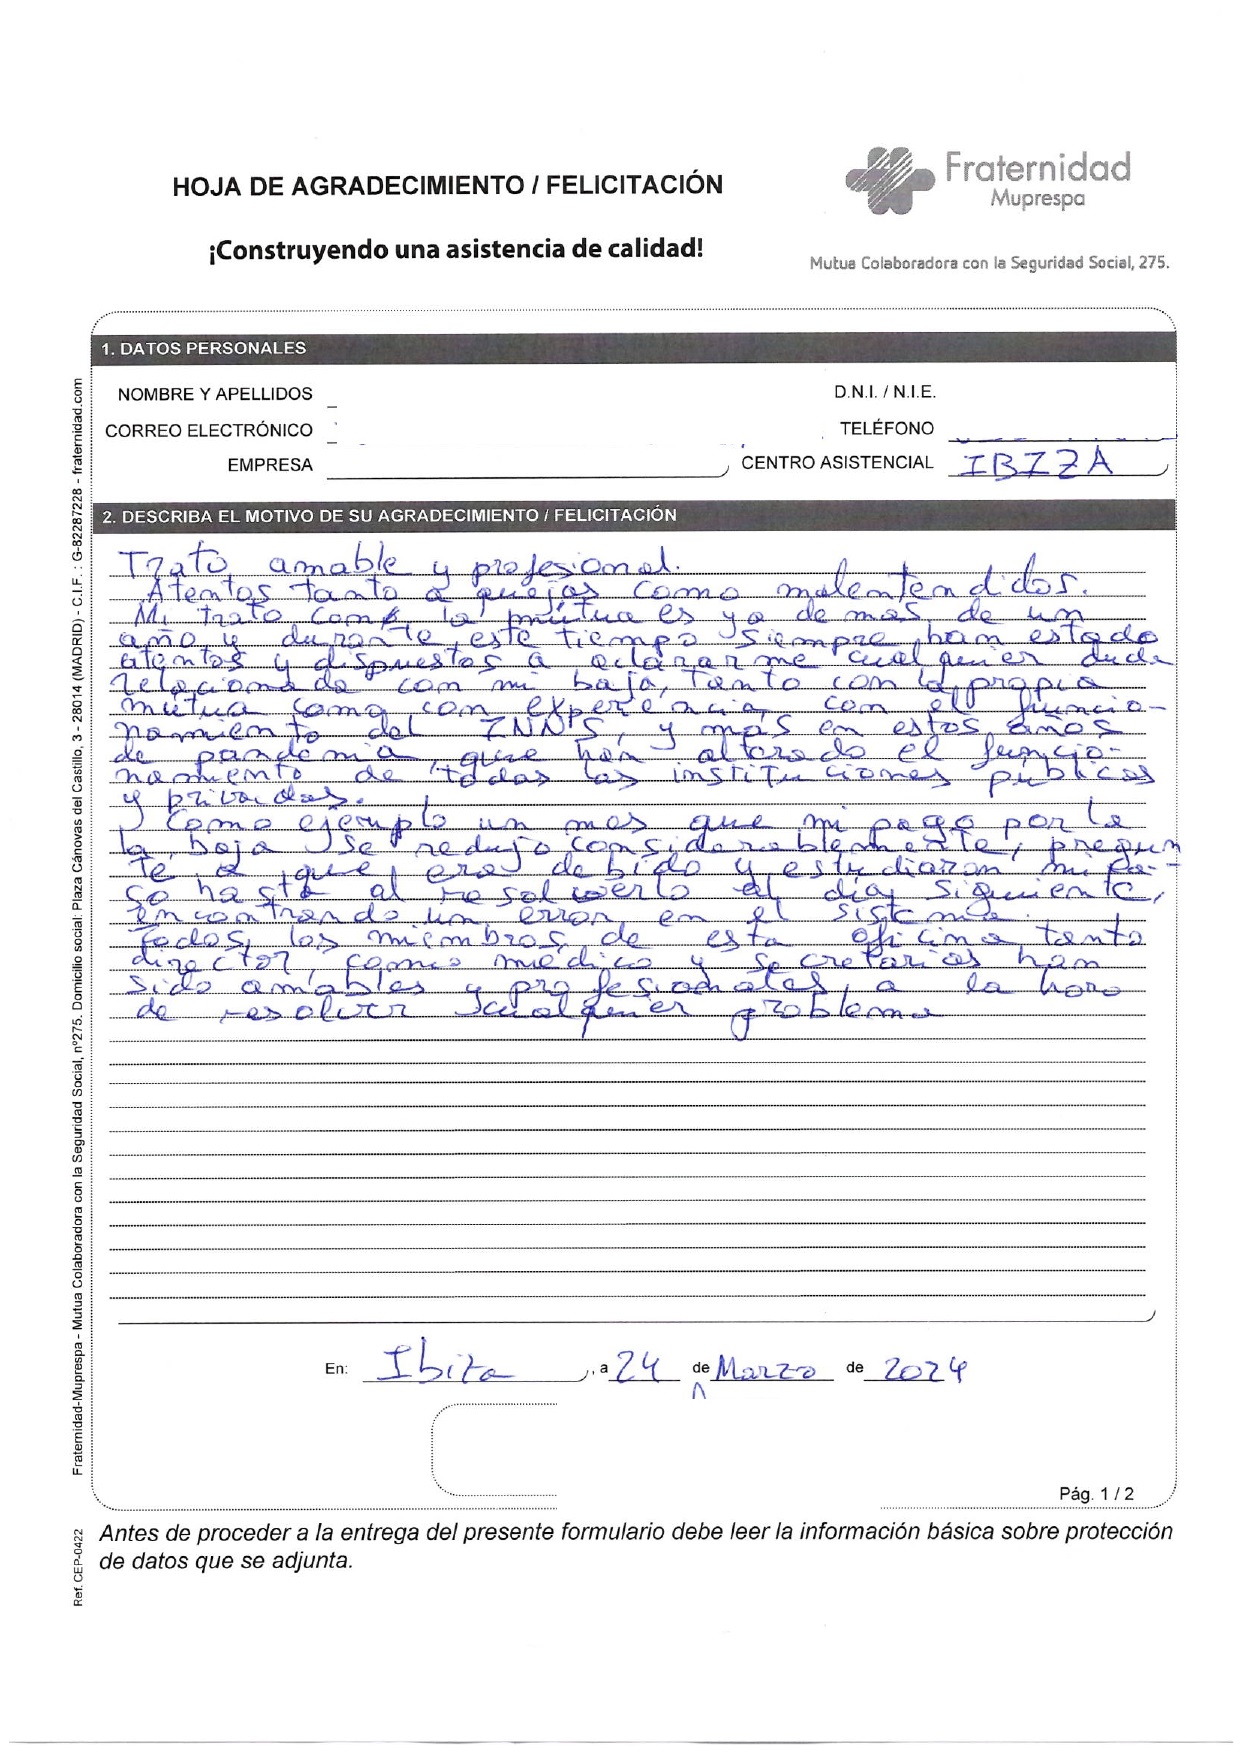 HOJA DE AGRADECIMIENTO / FELICITACIÓN
¡Construyendo una asistencia de calidad!
Fraternidad
Muprespa
Mutua Colaboradora con la Seguridad Social, 275.
1. DATOS PERSONALES
NOMBRE Y APELLIDOS
D.N.I. / N.I.E.
CORREO ELECTRÓNICO
TELÉFONO
EMPRESA
CENTRO ASISTENCIAL IBIZA
2. DESCRIBA EL MOTIVO DE SU AGRADECIMIENTO / FELICITACIÓN
Trato amable y profesional.
Atentos tanto a quejas como malentendidos.
Mi trato con la mútua es ya de mas de un
año y durante este tiempo siempre han estado
atentos y dispuestos a aclararme cualquier duda
relacionada con mi baja, tanto con la propia
mútua como con experiencia, con el funcio-
namiento del , y mas en estos años
de pandemia, que han alterado el funcio-
namiento de todas las instituciones publicas
y privadas.
Como ejemplo un mes que mi pago por la
la baja se redujo considerablemente, pregun
te a que era debido y estudiaron mi ca-
so hasta al resolverlo al dia siguiente,
encontrando un error en el sistema.
Todos los miembros de esta oficina tanto
director, como médico y secretarias han
sido amables y profesionales, a la hora
de resolver cualquier problema
En: Ibiza, a 24 de Marzo de 2024
Pág. 1 / 2
Antes de proceder a la entrega del presente formulario debe leer la información básica sobre protección
de datos que se adjunta.
Fraternidad-Muprespa - Mutua Colaboradora con la Seguridad Social, nº275. Domicilio social: Plaza Cánovas del Castillo, 3 - 28014 (MADRID) - C.I.F. : G-82287228 - fraternidad.com
Ref. CEP-0422